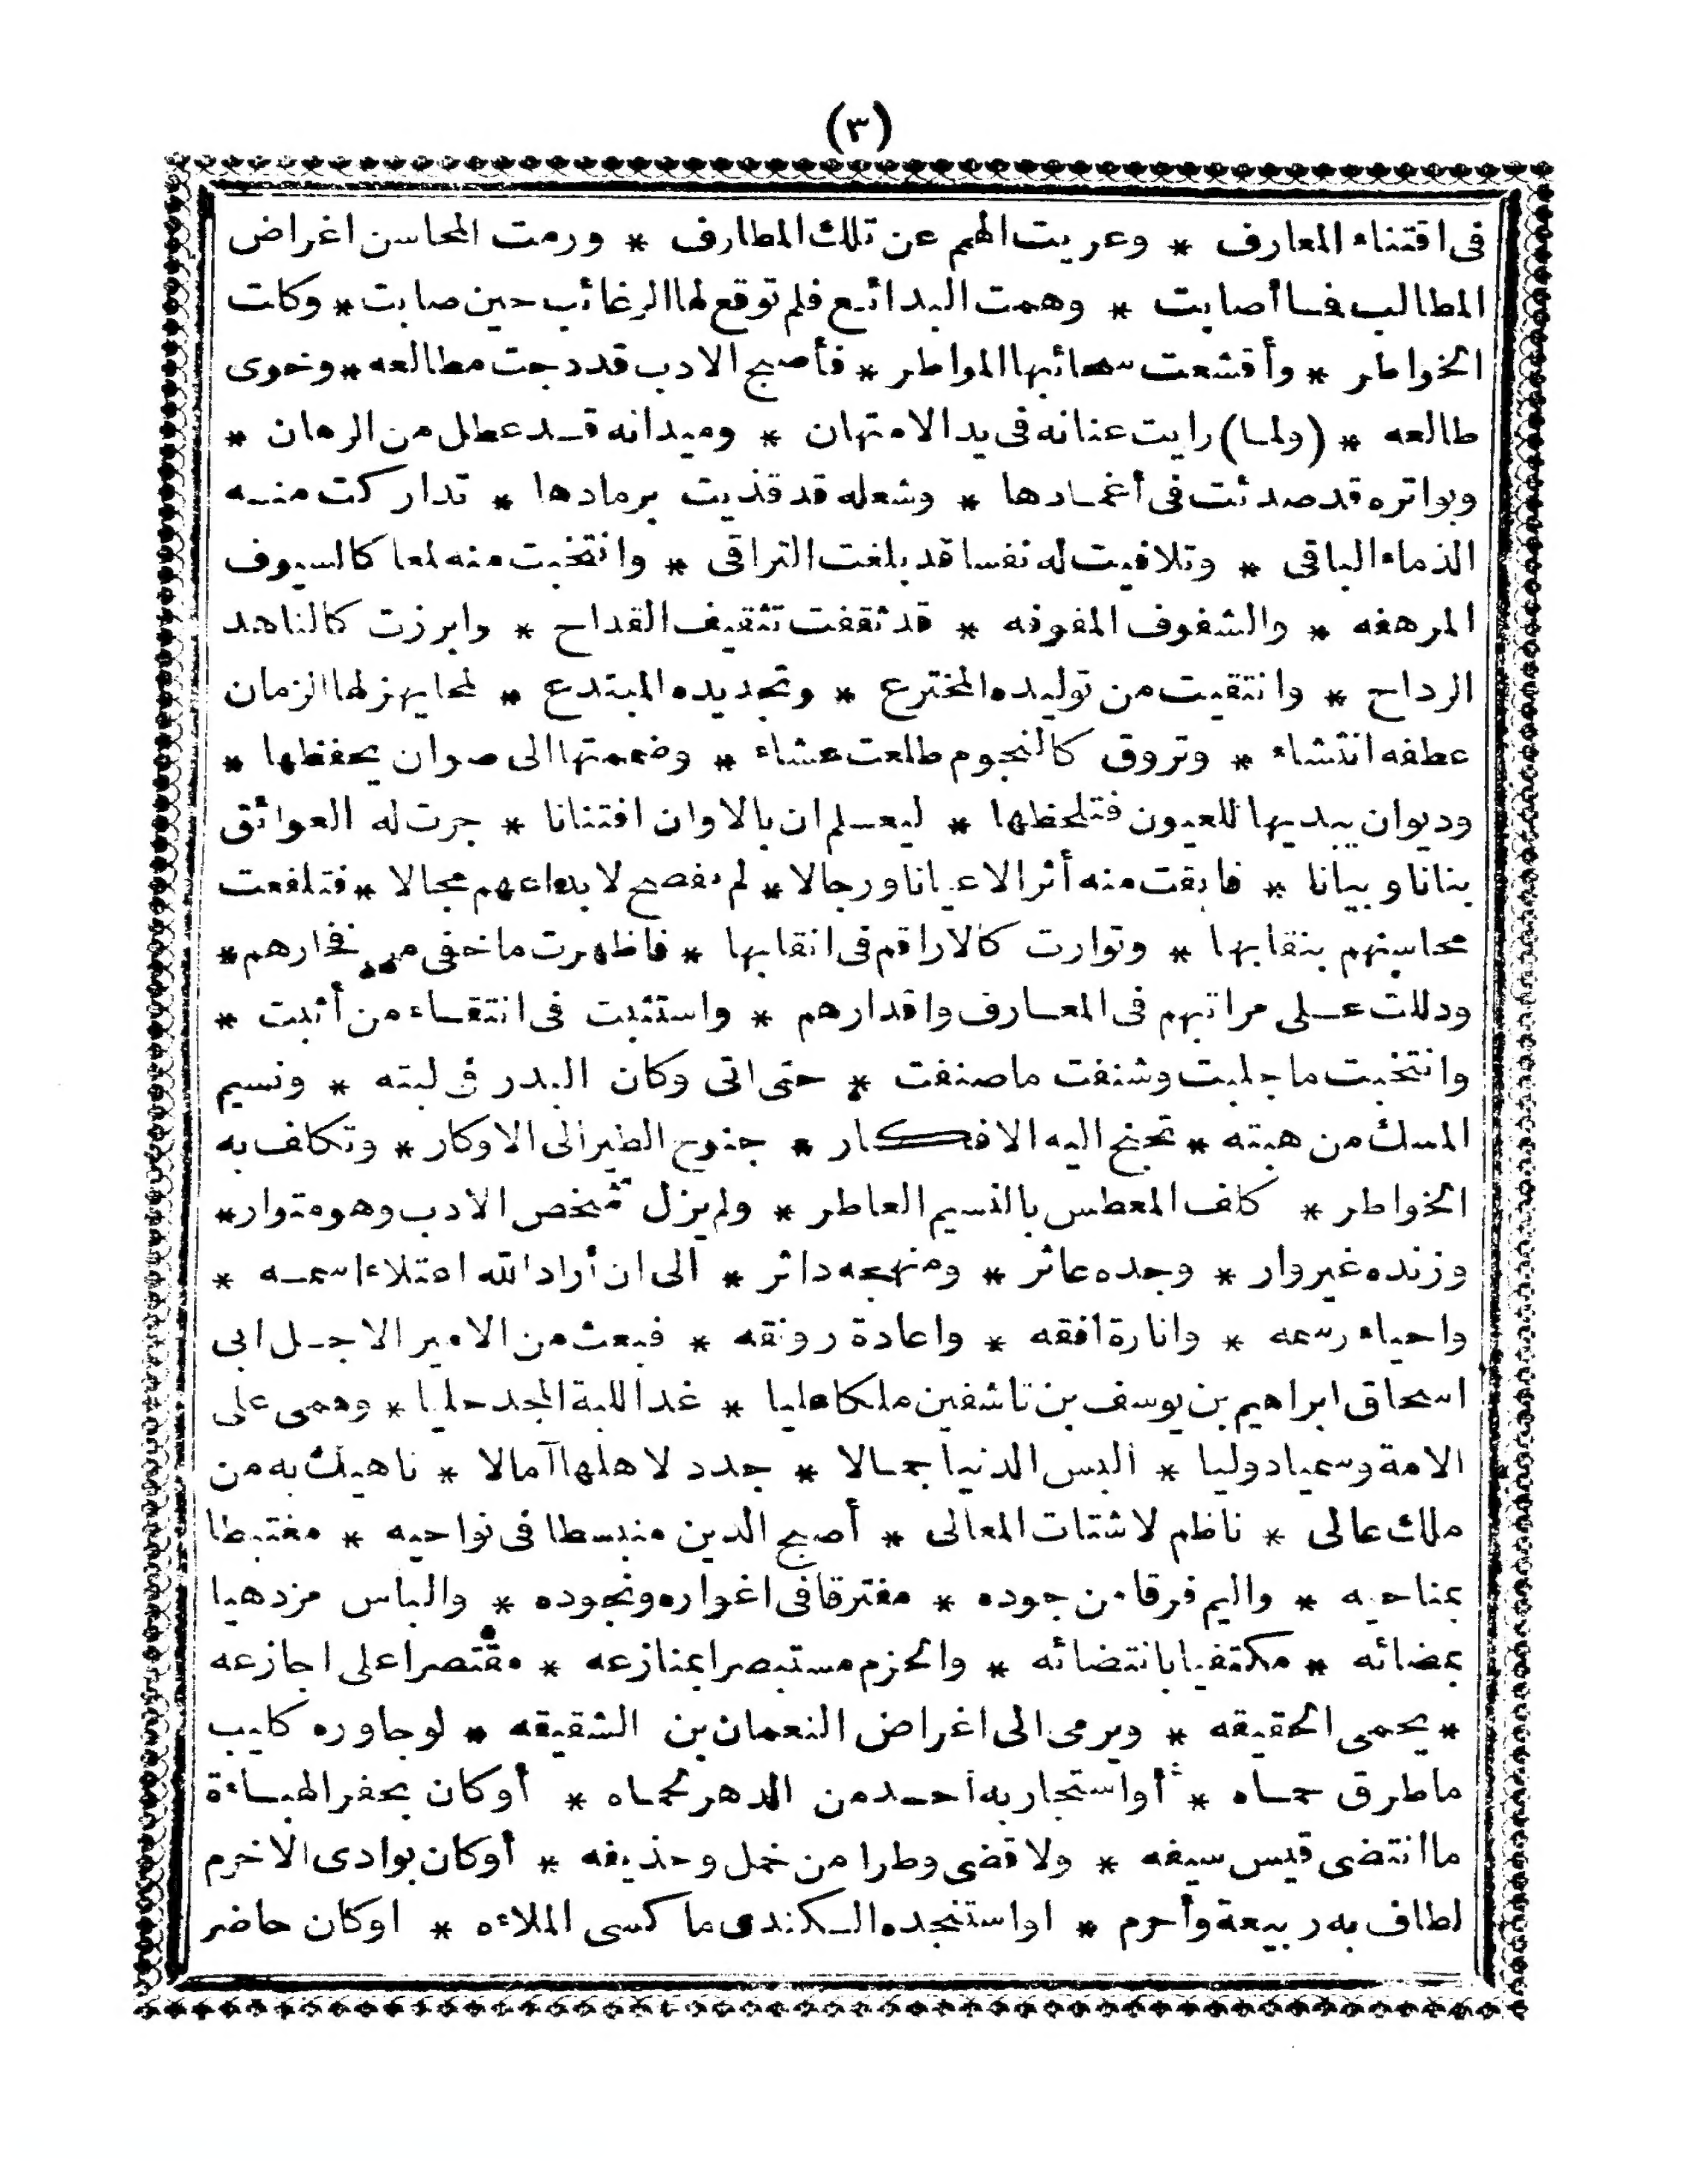 (٣)
فى اقتناء المعارف * وعريت الهمم عن تلك المطارف * ورمت المحاسن اغراض
المطالب فما أصابت * وهمت البدائع فلم توقع لها الرغائب حين صابت * وكلت
الخواطر * وأقشعت سحائبها المواطر * فأصبح الادب قد دجت مطالعه * وخوى
طالعه * (ولما) رايت عنانه فى يد الامتهان * وميدانه قد عطل من الرهان *
وبواتره قد صدئت فى أغمادها * وشعله قد قذيت برمادها * تداركت منه
الذماء الباقى * وتلافيت له نفسا قد بلغت التراقى * وانتخبت منه لمعا كالسيوف
المرهفه * والشفوف المفوفه * قد ثقفت تثقيف القداح * وابرزت كالناهد
الرداح * وانتقيت من توليده المخترع * وتجديده المبتدع * لمحا يهز لها الزمان
عطفه انتشاء * وتروق كالنجوم طلعت عشاء * وضممتها الى صوان يحفظها *
وديوان يبديها للعيون فتلحظها * ليعلم ان بالاوان افتنانا * جرت له العوائق
بنانا وبيانا * فابقت منه أثرا لاعيانا ورجالا * لم يفصح لابداعهم مجالا * فتلفعت
محاسنهم بنقابها * وتوارت كالاراقم فى انقابها * فاظهرت ما خفى من فخارهم *
ودللت على مراتبهم فى المعارف واقدارهم * واستثبت فى انتقاء من أثبت *
وانتخبت ما جلبت وشنفت ما صنفت * حتى اتى وكان البدر فى لبته * ونسيم
المسك من هبته * تجنح اليه الافكار * جنوح الطير الى الاوكار * وتكلف به
الخواطر * كلف المعطس بالنسيم العاطر * ولم يزل شخص الادب وهو متوار *
وزنده غير وار * وجده عاثر * ومنهجه داثر * الى ان أراد الله اعتلاء اسمه *
واحياء رسمه * وانارة افقه * واعادة رونقه * فبعث من الامير الاجل ابى
اسحاق ابراهيم بن يوسف بن تاشفين ملكا عليا * غدا للبة المجد حليا * وهمى على
الامة وسميا ووليا * البس الدنيا جمالا * جدد لاهلها آمالا * ناهيك به من
ملك عالى * ناظم لاشتات المعالى * أصبح الدين منبسطا فى نواحيه * مغتبطا
بمناحيه * واليم فرقا من جوده * مفترقا فى اغواره ونجوده * والباس مزدهيا
بمضائه * مكتفيا بانتضائه * والحزم مستبصرا بمنازعه * مقتصرا على اجازعه
* يحمى الحقيقه * ويرمى الى اغراض النعمان بن الشقيقه * لو جاوره كليب
ما طرق حماه * أو استجار به أحد من الدهر لحماه * أو كان بحفر الهباءة
ما انتضى قيس سيفه * ولا قضى وطرا من حمل وحذيفه * أو كان بوادى الاخرم
لطاف به ربيعة وأحرم * او استنجده الكندى ما كسى الملاءه * او كان حاضر